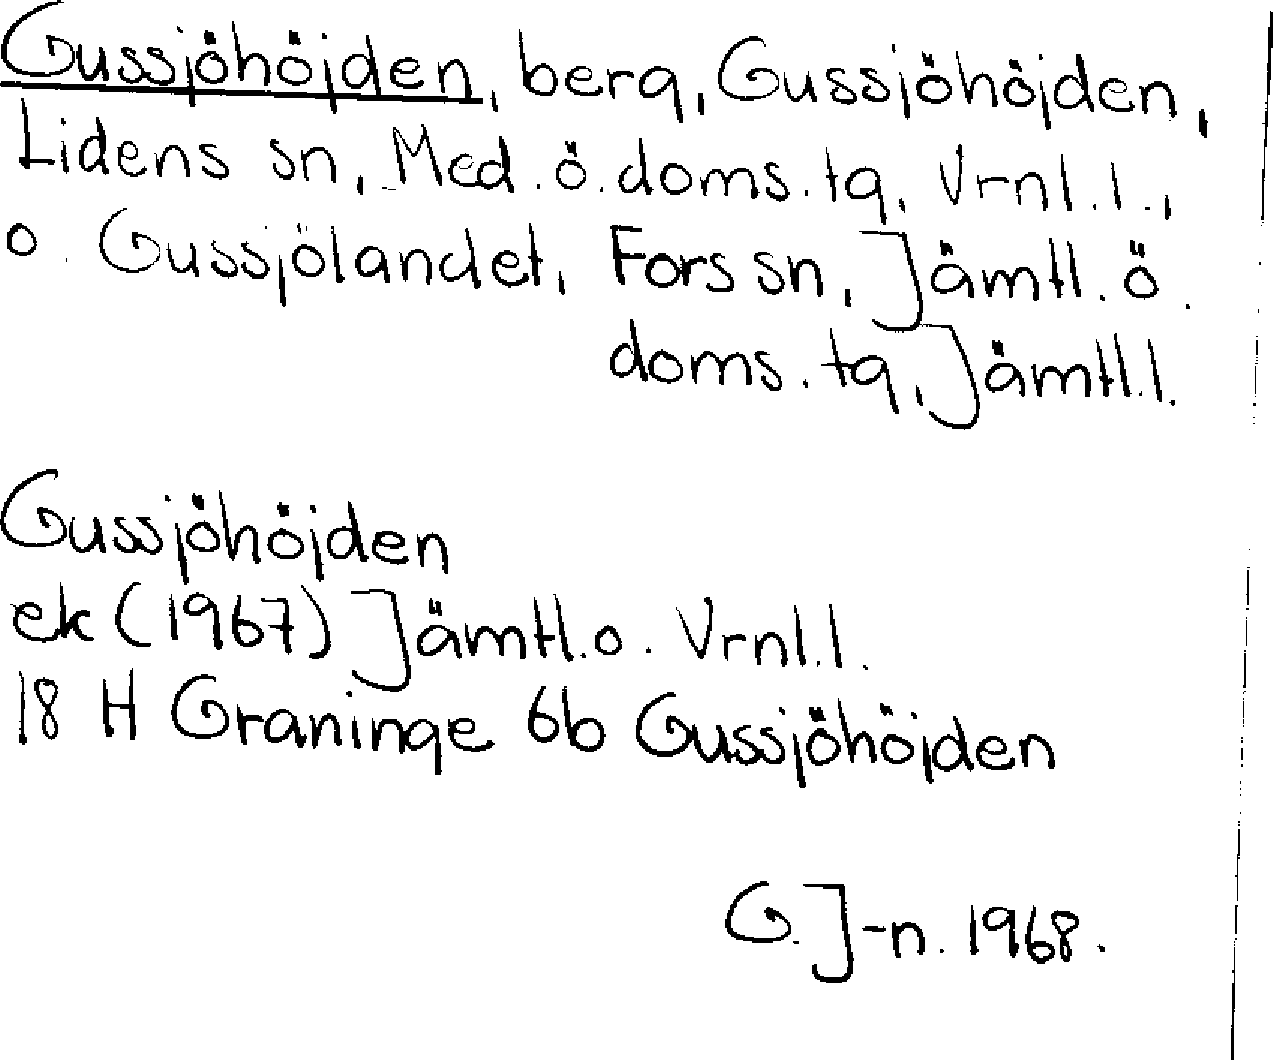 Gussjöhöjden, berg, Gussjöhöjden,
Lidens sn, Med. ö. doms. tg, Vrnl. l.,
o. Gussjölandet, Fors sn, Jämtl. ö.
doms. tg, Jämtl. l.
Gussjöhöjden
ek (1967) Jämtl. o. Vrnl. l.
18 H Graninge 6b Gussjöhöjden
G. J-n. 1968.